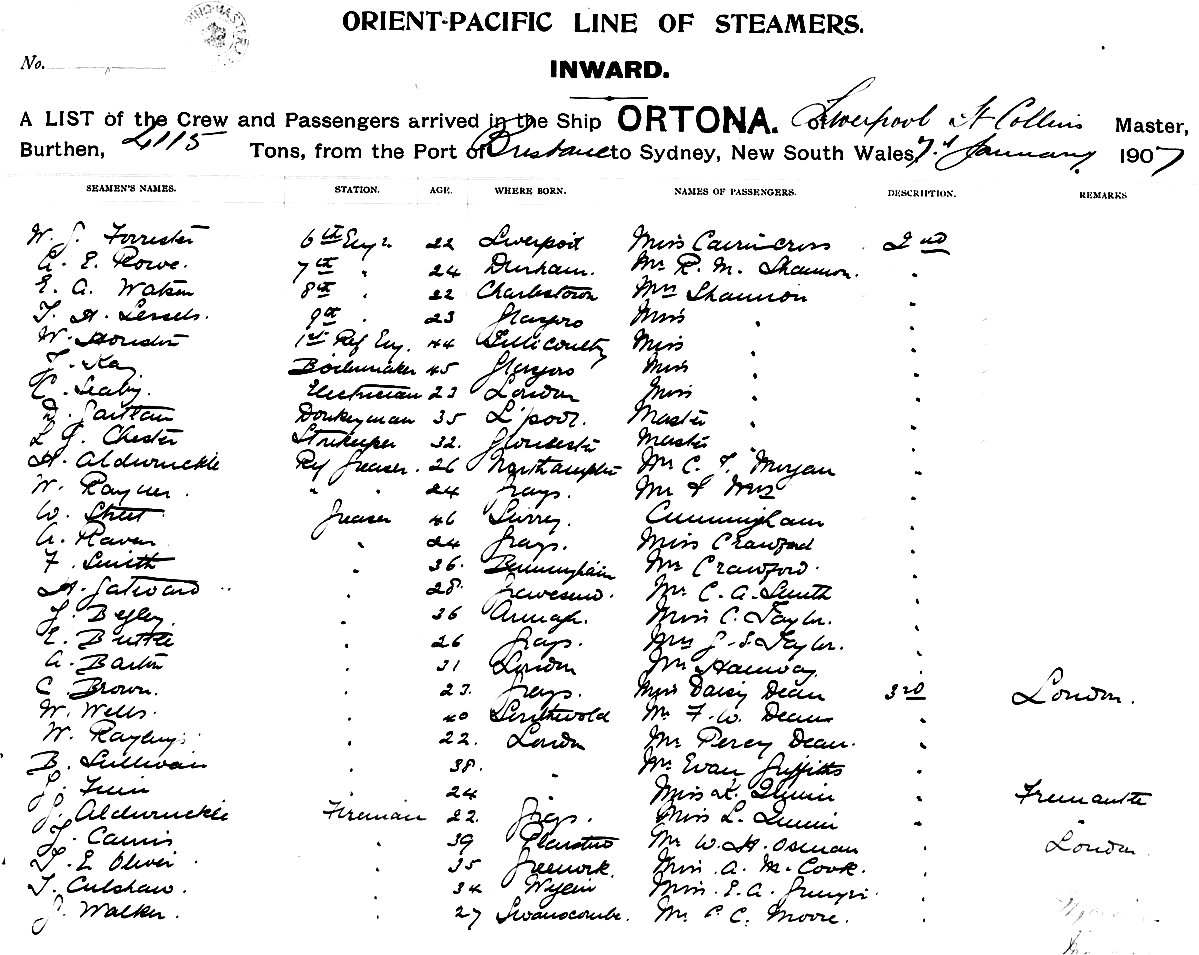 ORIENT-PACIFIC LINE OF STEAMERS.
No.
INWARD.
A LIST of the Crew and Passengers arrived in the Ship ORTONA. of Liverpool A Collins Master,
Burthen, 4115 Tons, from the Port of Brisbane to Sydney, New South Wales, 7th January 1907
SEAMEN'S NAMES. STATION. AGE. WHERE BORN. NAMES OF PASSENGERS. DESCRIPTION. REMARKS
W. J. Forrester 6th Engr 22 Liverpool Miss Cairncross 2nd
A. E. Rowe. 7th " 24 Durham. Mr R. M. Shannon. "
E. A. Watson 8th " 22 Charlestown Mrs Shannon "
T. H. Lessels. 9th " 23 Glasgow Miss " "
W. Houston 1st Ref Eng. 44 Tillicoultry Miss " "
J. Kay Boilermaker 45 Glasgow Miss " "
C. Seabry. Electrician 23 London Miss " "
D. Donkeyman 35 L'pool. Master " "
L G. Chester Storekeeper 32. Gloucester Master " "
H. Aldwinckle Ref Greaser. 26 Northampton Mr C. T. Morgan "
W. Rayner. " " 24 Grays. Mr & Mrs "
W. Street Greaser 46 Surrey. Cunningham "
A. Raven " 24 Grays. Miss Crawford "
F. Smith " 36. Birmingham Mr Crawford. "
H. Gatward " 28. Gravesend. Mr C. A. Smith "
J. Begley. " 36 Armagh. Miss C. Taylor. "
E. Buttle " 26 Grays. Mrs J. S. Taylor. "
A. Barton " 31 London Mr Hanway "
C. Brown. " 23. Grays. Miss Daisy Dean 3rd London.
W. Wells. " 40 Southwold Mr F. W. Deane "
W. Rayley. " 22. London Mr Percy Dean. "
B. Sullivan " 38. " Mr Evan Griffiths "
J. Finn " 24 " Miss K. Quinn " Fremantle
J. Aldwinckle Fireman 22. Grays. Miss L. Quinn "
J. Cannis " 39 Plaistow Mr W. H. Osman " London
T. E Oliver " 35 Greenock. Miss A. M. Cook. "
T. Culshaw. " 34 Wigan Miss. E. A. "
J. Walker. " 27 Swanscombe. Mr C. C. Moore. "